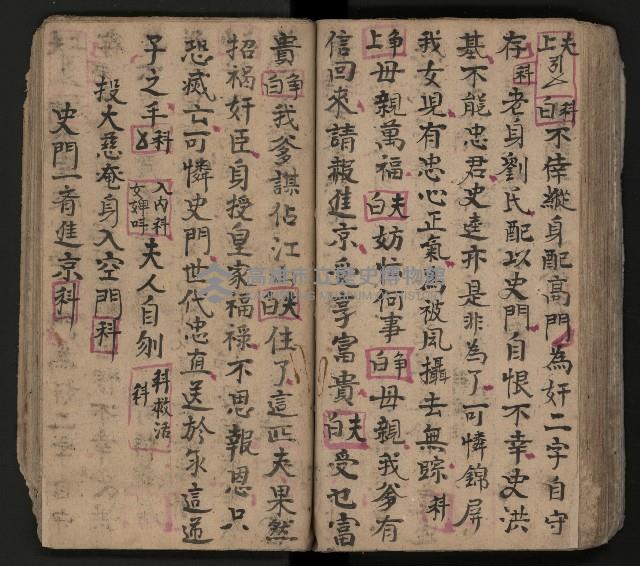 夫上引白科不倖縱身配高門為奸二字自守
存科老身劉氏配以史門自恨不幸史洪
基不能忠君史逵亦是非為了可憐錦屏
我女現有忠心正氣為被風攝去無踪科
争上母親萬福夫白妨忙何事争白母親我爹有
信回來請報進京受享富貴夫白受乜富
貴争白我爹謀佔江山夫白住了這匹夫果然
招禍奸臣身授皇家福祿不思報恩只
恐滅亡可憐史門世代忠直送於尔這逆
子之手科入內科女婢呌夫人自刎科救活科
投大慈庵身入空門科
史門一斉進京科
高雄市立歷史博物館
KAOHSIUNG MUSEUM OF HISTORY